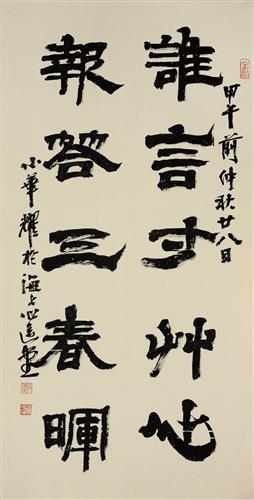 誰言寸艸心
報答三春暉
甲午前仲秋廿八日
小華耀於海上